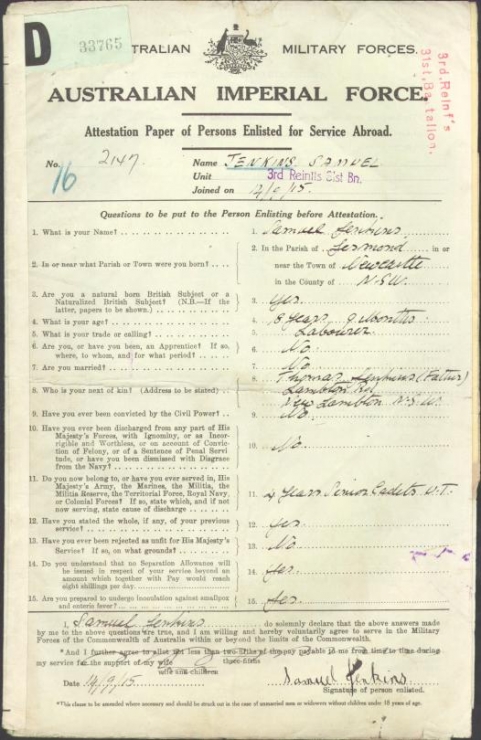 D
33765
AUSTRALIAN MILITARY FORCES.
3rd. Reinf's
31st. Battalion.
AUSTRALIAN IMPERIAL FORCE.
Attestation Paper of Persons Enlisted for Service Abroad.
No. 2147. Name JENKINS SAMUEL
16
Unit 3rd Reintfs 31st Bn.
Joined on 14/9/15.
Questions to be put to the Person Enlisting before Attestation.
1. What is your Name? 1. Samuel Jenkins
2. In or near what Parish or Town were you born? 2. In the Parish of Jesmond in or
near the Town of Newcastle
in the County of N.S.W.
3. Are you a natural born British Subject or a
Naturalized British Subject? (N.B.—If the
latter, papers to be shown.) 3. Yes.
4. What is your age? 4. 18 Years 9 Months
5. What is your trade or calling? 5. Labourer
6. Are you, or have you been, an Apprentice? If so,
where, to whom, and for what period? 6. No
7. Are you married? 7. No
8. Who is your next of kin? (Address to be stated) 8. Thomas Jenkins (Father)
Lambton Rd
New Lambton N.S.W.
9. Have you ever been convicted by the Civil Power? 9. No.
10. Have you ever been discharged from any part of His
Majesty's Forces, with Ignominy, or as Incor-
rigible and Worthless, or on account of Convic-
tion of Felony, or of a Sentence of Penal Servi-
tude, or have you been Dismissed with Disgrace
from the Navy? 10. No.
11. Do you now belong to, or have you ever served in, His
Majesty's Army, the Marines, the Militia, the
Militia Reserve, the Territorial Force, Royal Navy,
or Colonial Forces? If so, state which, and if not
now serving, state cause of discharge 11. 4 Years Senior Cadets
12. Have you stated the whole, if any, of your previous
service? 12. Yes.
13. Have you ever been rejected as unfit for His Majesty's
Service? If so, on what grounds? 13. No.
14. Do you understand that no Separation Allowance will
be issued in respect of your service beyond an
amount which together with Pay would reach
eight shillings per day. 14. Yes.
15. Are you prepared to undergo inoculation against smallpox
and enteric fever? 15. Yes.
I, Samuel Jenkins do solemnly declare that the above answers made
by me to the above questions are true, and I am willing and hereby voluntarily agree to serve in the Military
Forces of the Commonwealth of Australia within or beyond the limits of the Commonwealth.
*And I further agree to allot not less than two-fifths of the pay payable to me from time to time during
three-fifths
my service for the support of my wife
wife and children.
Date 14/9/15 Samuel Jenkins
Signature of person enlisted.
*This clause to be amended where necessary and should be struck out in the case of unmarried men or widowers without children under 18 years of age.